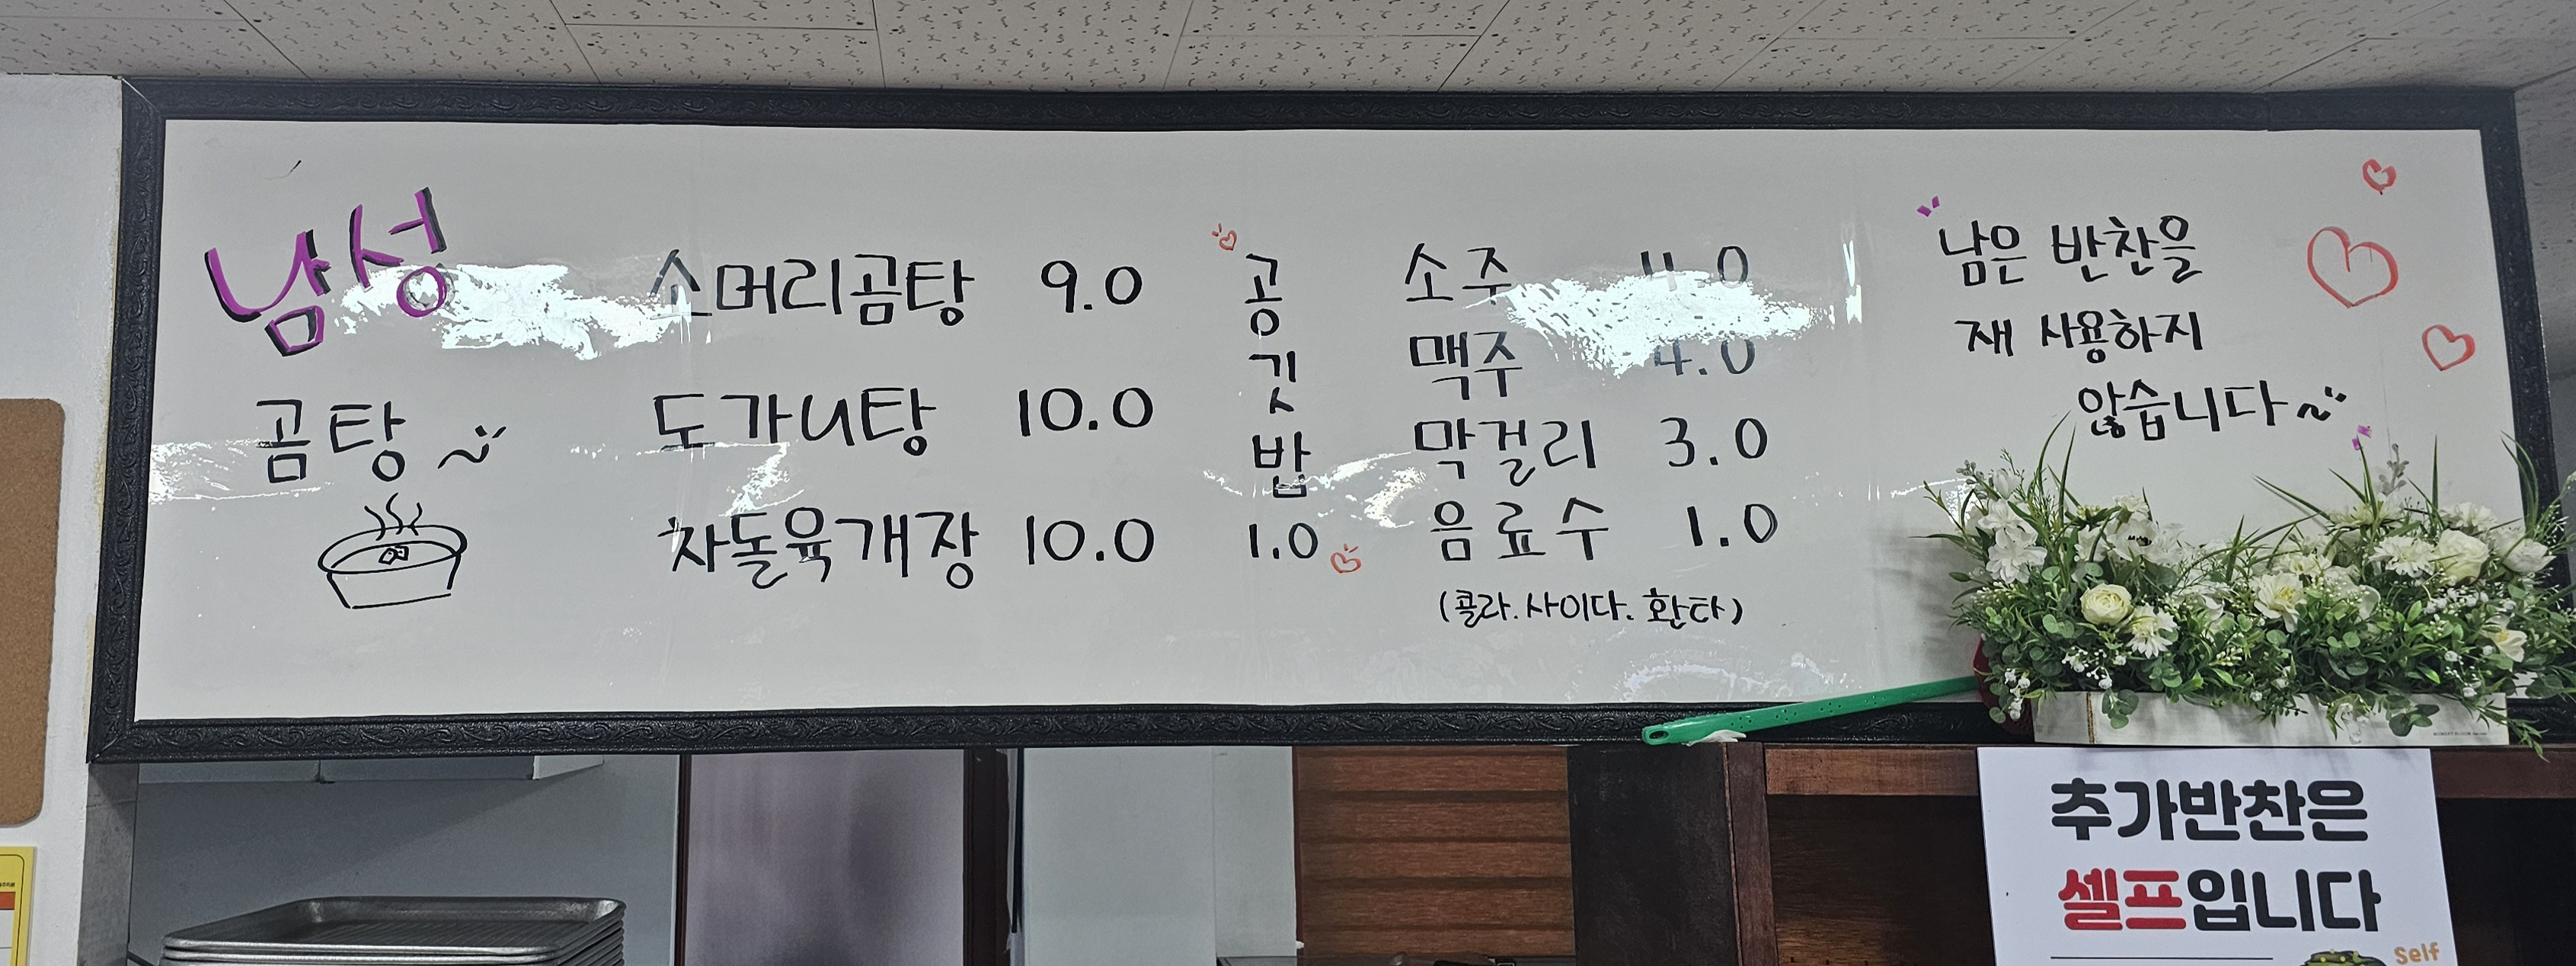 남성
곰탕~
소머리곰탕 9.0
도가니탕 10.0
차돌육개장 10.0
공
깃
밥
1.0
소주 4.0
맥주 4.0
막걸리 3.0
음료수 1.0
(콜라.사이다.환타)
남은 반찬을
재 사용하지
않습니다~
추가반찬은
셀프입니다
Self